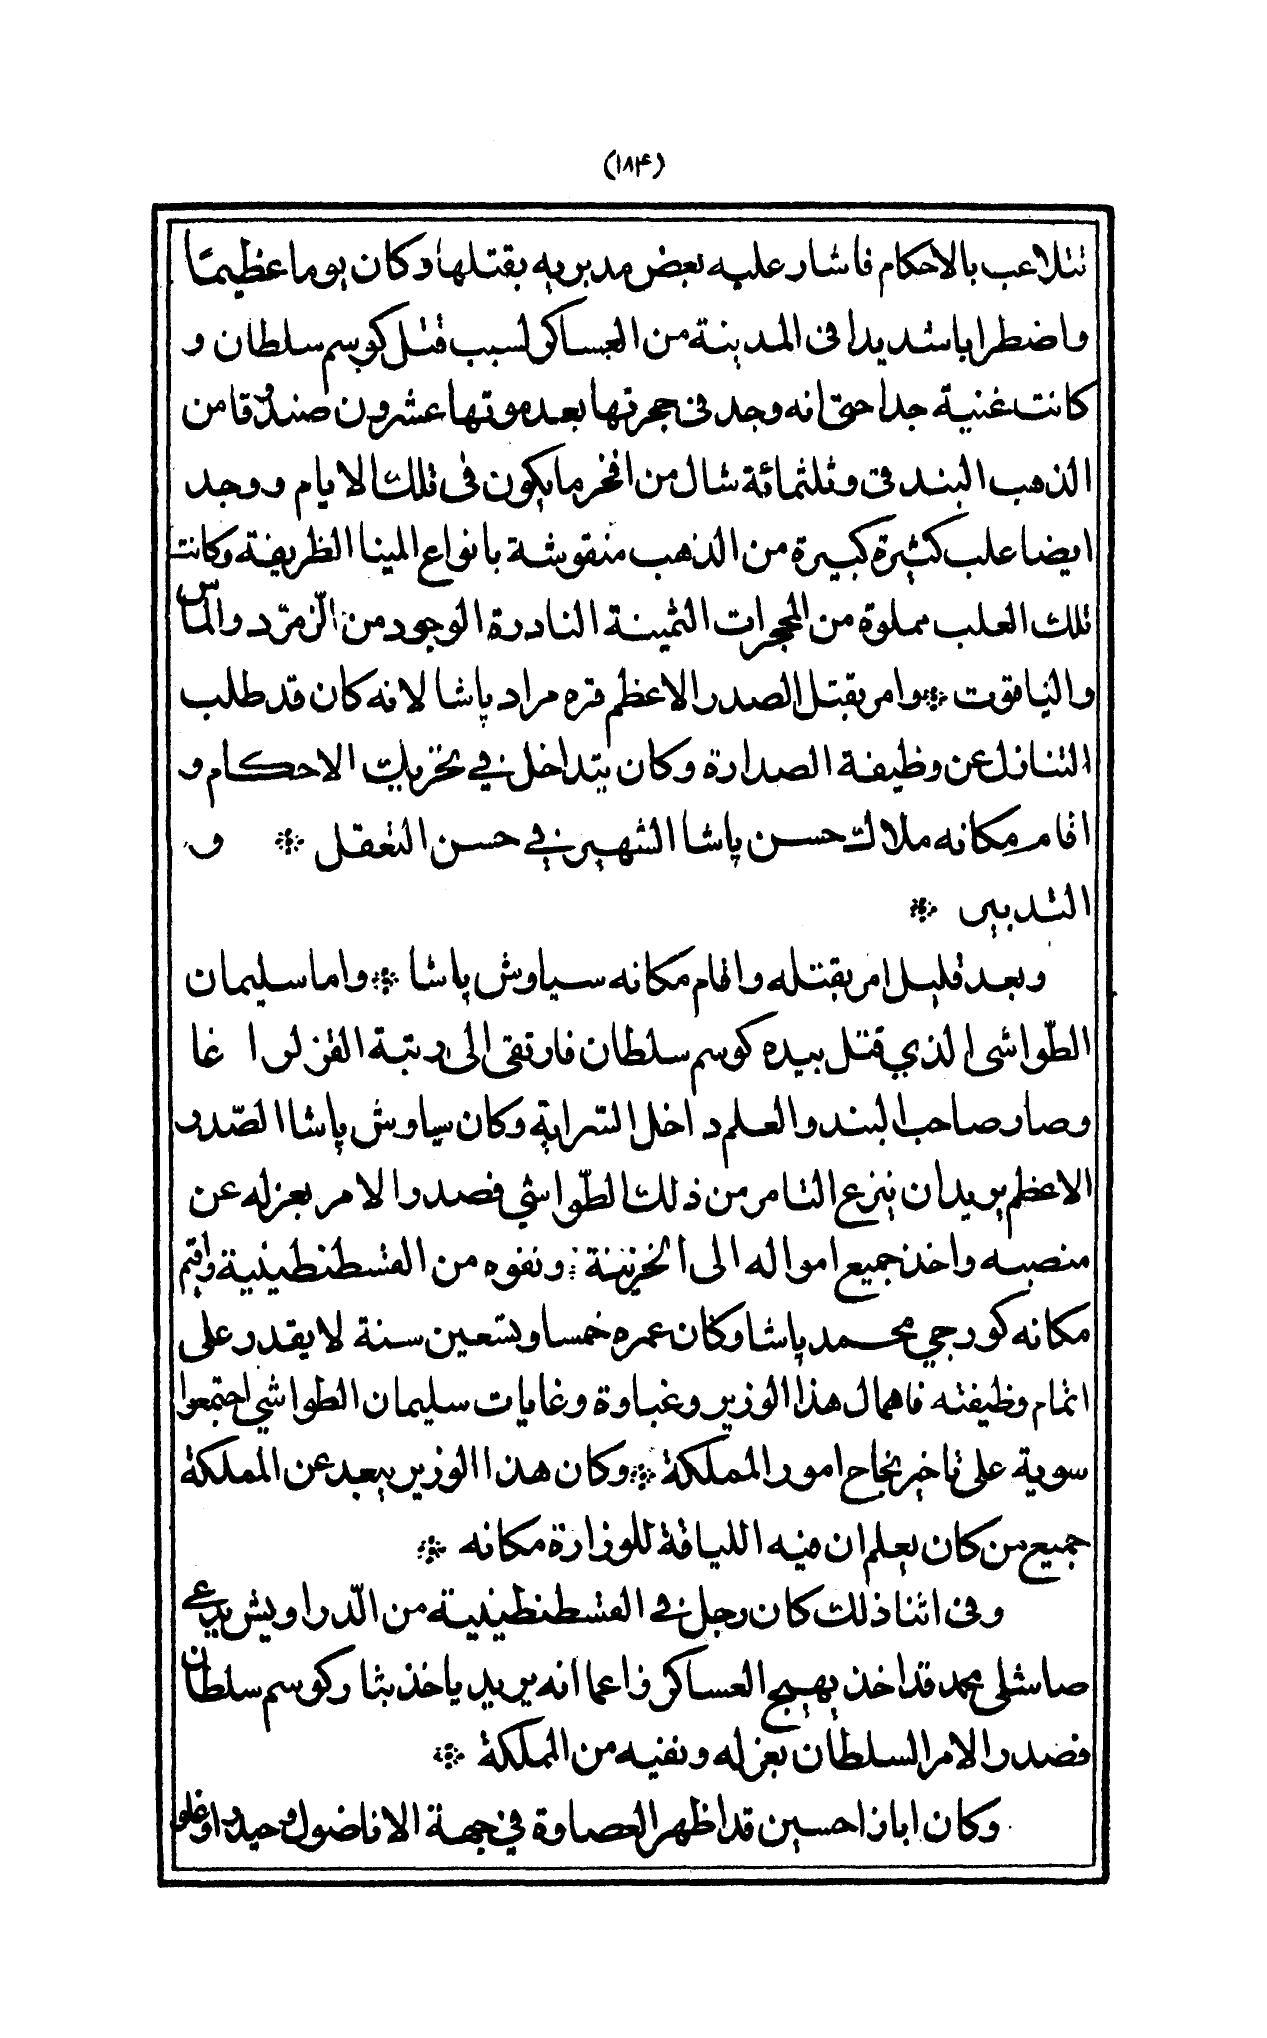 (١٨٤)
تتلاعب بالاحكام فاشار عليه بعض مدبريه بقتلها وكان يوما عظيمًا
واضطرابا شديدا فى المدينة من العساكر لسبب قتل كوسم سلطان و
كانت غنية جدا حتى انه وجد فى حجرتها بعد موتها عشرون صندوقا من
الذهب البندقى وثلثمائة شال من افخر ما يكون فى تلك الايام ووجد
ايضا علب كثيرة كبيرة من الذهب منقوشة بانواع المينا الظريفة وكانت
تلك العلب مملوة من الحجرات الثمينة النادرة الوجود من الزمرّد والماس
والياقوت * وامر بقتل الصدر الاعظم قره مراد پاشا لانه كان قد طلب
التنازل عن وظيفة الصدارة وكان يتداخل في تخريبات الاحكام و
اقام مكانه ملاك حسن پاشا الشهير في حسن التعقل * و
التدبير *
وبعد قليل امر بقتله واقام مكانه سياوش پاشا * واما سليمان
الطّواشى الذي قتل بيده كوسم سلطان فارتقى الى رتبة القزلر ا غا
وصار صاحب البند والعلم داخل السراية وكان سياوش پاشا الصّدر
الاعظم يريد ان ينزع التامر من ذلك الطّواشي فصدر الامر بعزله عن
منصبه واخذ جميع امواله الى الخزينة : ونفوه من القسطنطينية واقيم
مكانه كورجي محمد پاشا وكان عمره خمسا وتسعين سنة لا يقدر على
اتمام وظيفته فاهمال هذا الوزير وغباوة وغايات سليمان الطواشي اجتمعوا
سوية على تاخير نجاح امور المملكة * وكان هذا الوزير يبعد عن المملكة
جميع من كان يعلم ان فيه اللياقة للوزارة مكانه *
وفى اثنا ذلك كان رجل في القسطنطينية من الدّراويش يدعى
صاشلى محمد قد اخذ يهيج العساكر زاعما انه يريد ياخذ بثار كوسم سلطان
فصدر الامر السلطان بعزله ونفيه من المملكة *
وكان ابازا حسين قد اظهر العصاوة في جهة الاناضول وحيدر اوغلو